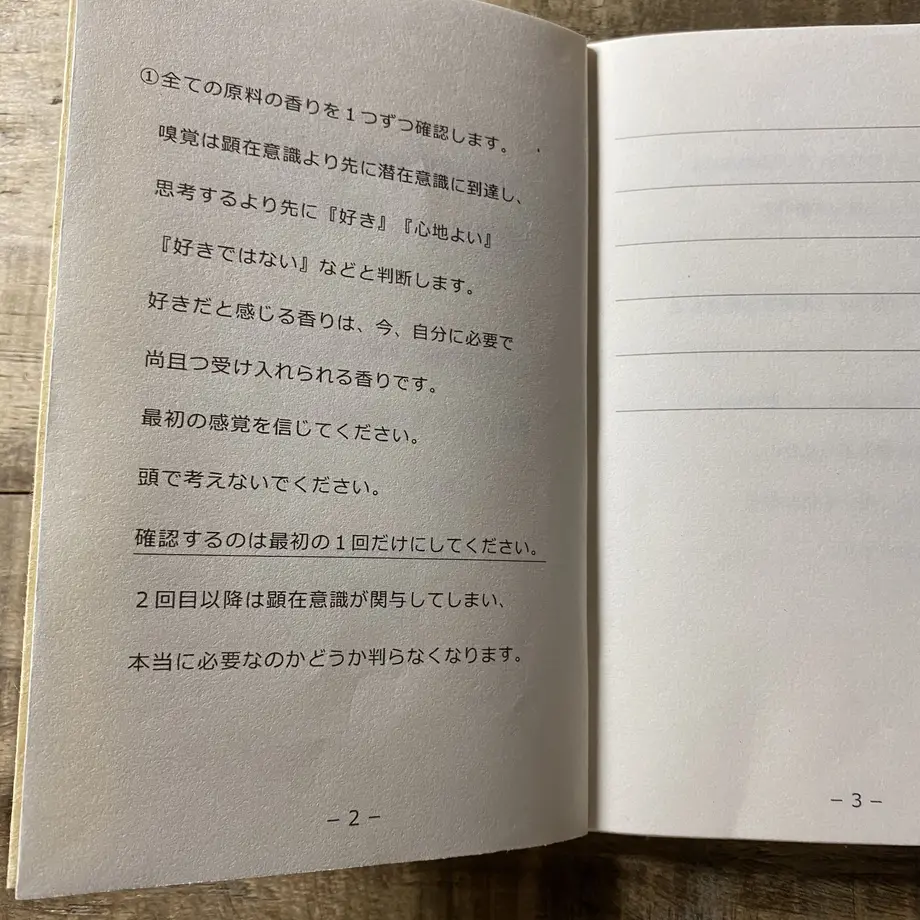 ①全ての原料の香りを１つずつ確認します。
嗅覚は顕在意識より先に潜在意識に到達し、
思考するより先に『好き』『心地よい』
『好きではない』などと判断します。
好きだと感じる香りは、今、自分に必要で
尚且つ受け入れられる香りです。
最初の感覚を信じてください。
頭で考えないでください。
確認するのは最初の１回だけにしてください。
２回目以降は顕在意識が関与してしまい、
本当に必要なのかどうか判らなくなります。
－２－
－３－